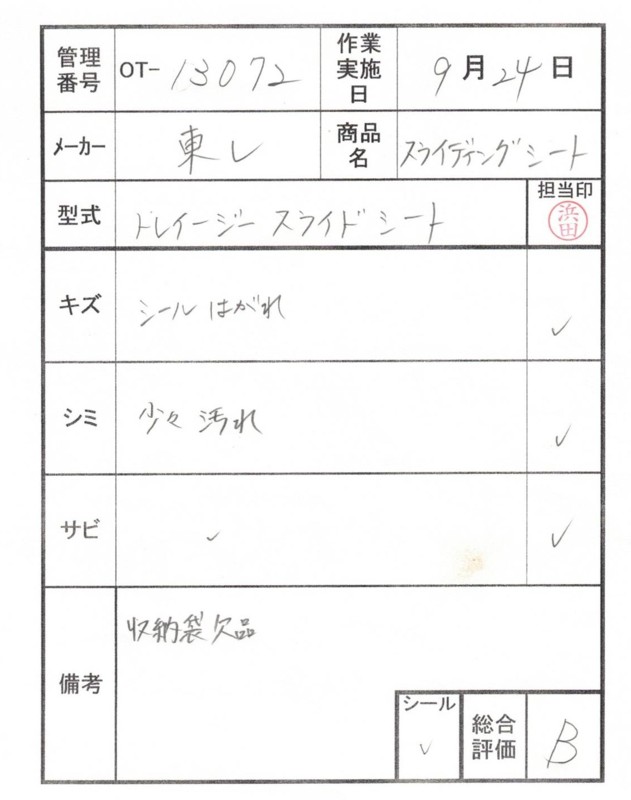 管理番号 OT-13072 作業実施日 9月24日
メーカー 東レ 商品名 スライディングシート
型式 トレイージースライドシート 担当印 浜田
キズ シールはがれ ✓
シミ 少々汚れ ✓
サビ ✓ ✓
備考 収納袋欠品
シール ✓ 総合評価 B